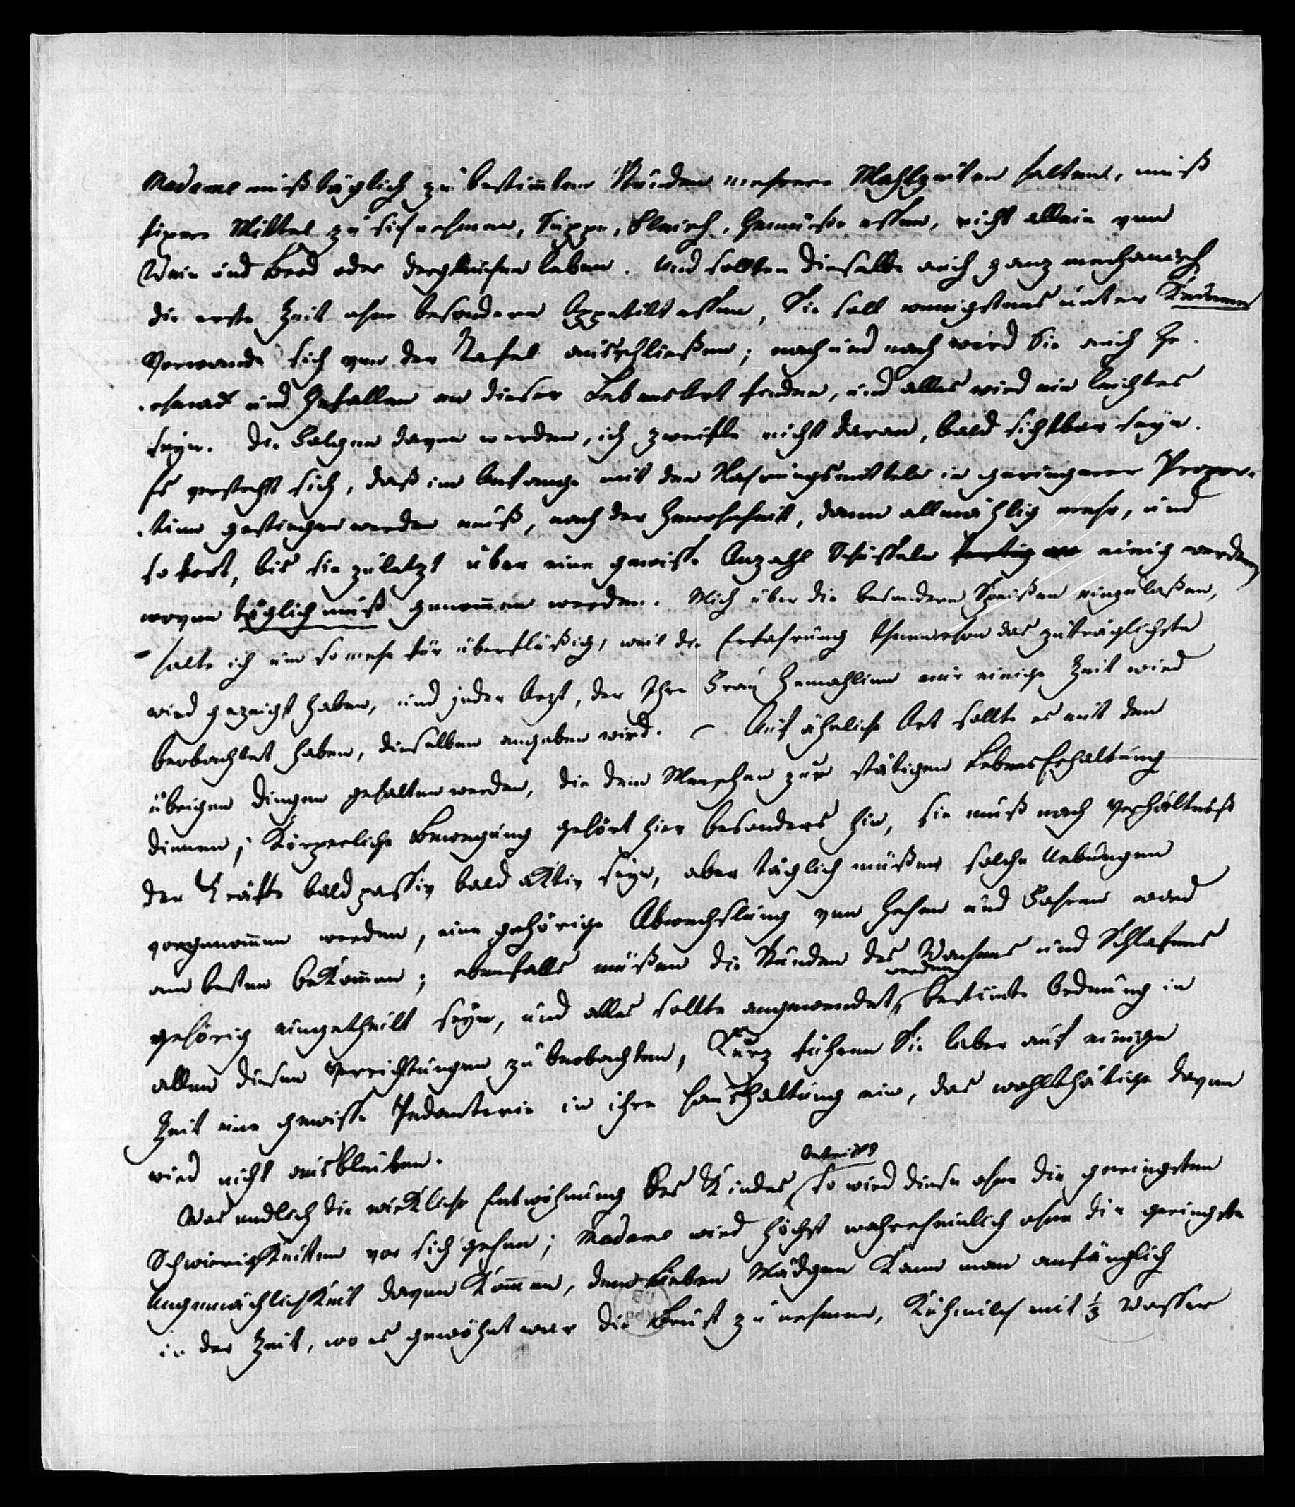 Madame muß täglich zu bestimten Stunden mehrere Mahlzeiten halten, muß
fixere Mittel zu sich nehmen, Suppe, Fleisch, Gemüße essen, nicht allein von
Wein und Brod oder dergleichen leben. Und sollten dieselbe auch ganz mechanisch
die erste Zeit ohne besondern Appetitt essen, Sie soll wenigstens unter Keinem
Vorwande sich von der Tafel ausschließen; nach und nach wird Sie auch Ge-
schmak und Gefallen an dieser LebensArt finden, und alles wird ein leichtes
seyn. Die Folgen davon werden, ich zweifle nicht daran, bald sichtbar seyn.
Es versteht sich, daß im Anfange mit den Nahrungsmitteln in geringerer Propor-
tion gestiegen werden muß, nach der Gewohnheit, dann allmählig mehr, und
so fort, bis sie zuletzt über eine gewisse Anzahl Schüsseln einig werden,
wovon täglich muß genommen werden. Mich über die besondern Speißen einzulaßen,
halte ich um so mehr für überflüßig, weil die Erfahrung Ihnen schon das zuträglichste
wird gezeigt haben, und jeder Arzt, der Ihre Frau Gemahlinn nur einige Zeit wird
beobachtet haben, dieselben angeben wird. – Auf ähnliche Art sollte es mit den
übrigen Dingen gehalten werden, die dem Menschen zur stätigen LebensErhaltung
dienen; Körperliche Bewegung gehört hier besonders hin, sie muß nach Verhältniß
der Kräfte bald passiv bald aktiv seyn, aber täglich müßen solche Uebungen
vorgenommen werden, eine gehörige Abwechslung von Gehen und Fahren ward
am besten bekommen; ebenfalls müßen die Stunden des Wachens und Schlafens
gehörig eingetheilt seyn, und alles sollte angewendet werden bestimte Ordnung in
allen diesen Verrichtungen zu beobachten, Kurz führen Sie lieber auf einige
Zeit eine gewisse Pedanterie in ihre Haushaltung ein, das wohlthätige davon
wird nicht ausbleiben.
Was endlich die wirkliche Entwöhnung des Kindes betrifft so wird diese ohne die geringsten
Schwierigkeiten vor sich gehen; Madame wird höchst wahrscheinlich ohne die geringste
Ungemächlichkeit davon kommen, dem lieben Mädgen kann man anfänglich
in der Zeit, wo es gewöhnt war die Brust zu nehmen, Kuhmilch mit Wasser